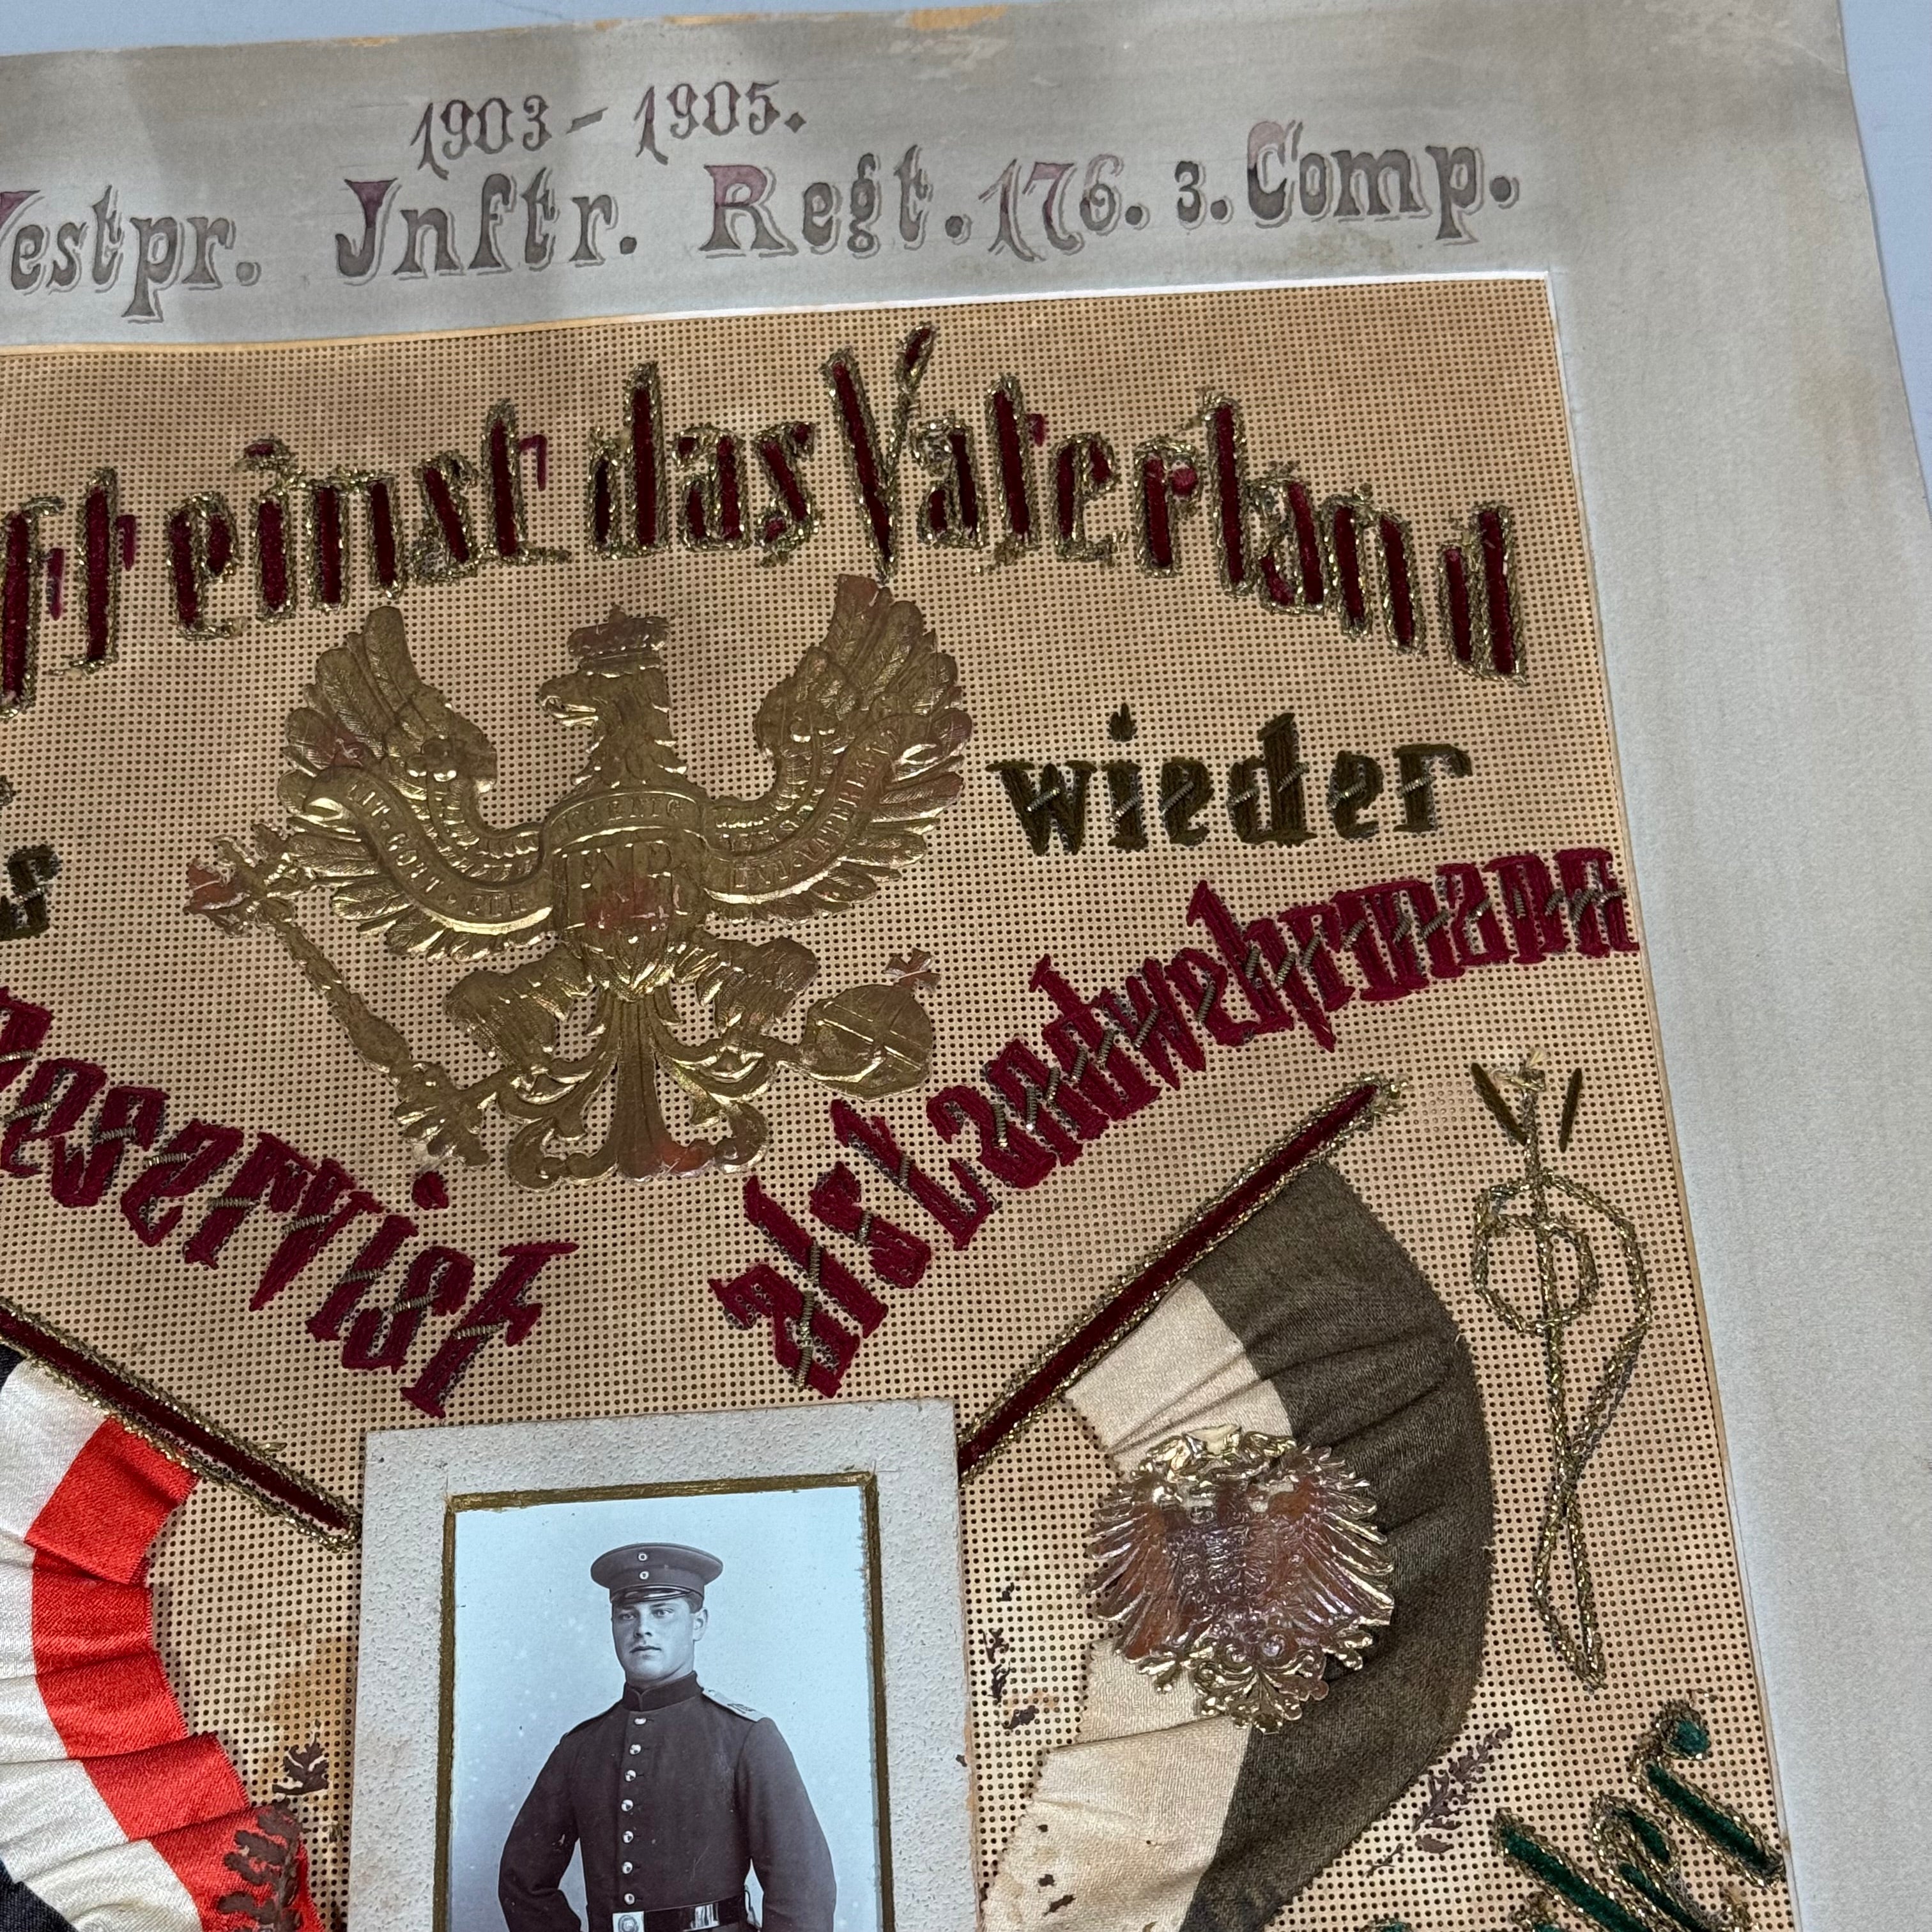 1903 – 1905.
Westpr. Jnftr. Regt. 176. 3. Comp.
einst das Vaterland
wieder
Reservist
als Landwehrmann
MIT·GOTT·FÜR KOENIG UND VATERLAND